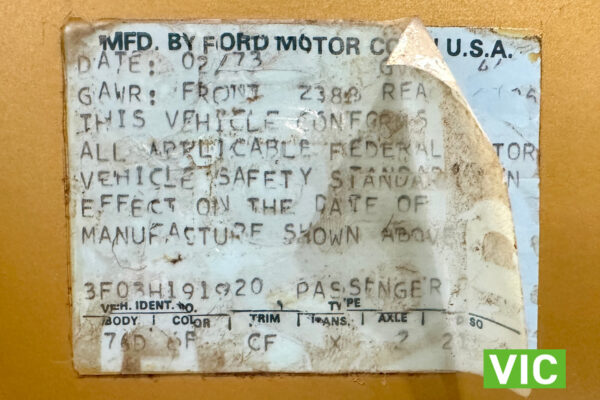 MFD. BY FORD MOTOR CO. IN U.S.A.
DATE: 02/73
GAWR: FRONT 2388 REA
THIS VEHICLE CONFORMS
ALL APPLICABLE FEDERAL MOTOR
VEHICLE SAFETY STANDAR
EFFECT ON THE DATE OF
MANUFACTURE SHOWN ABOVE
3F03H191920 PASSENGER
VEH. IDENT. NO. TYPE
BODY COLOR TRIM TRANS. AXLE DSO
76D 6F CF X 2 21
VIC